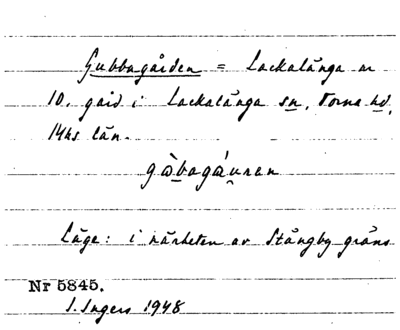 Gubbagården = Lackalänga nr
10. gård i Lackalänga sn, Torna hd,
Mhs län.
Läge: i närheten av Stångby gräns
Nr 5845.
I. Ingers 1948